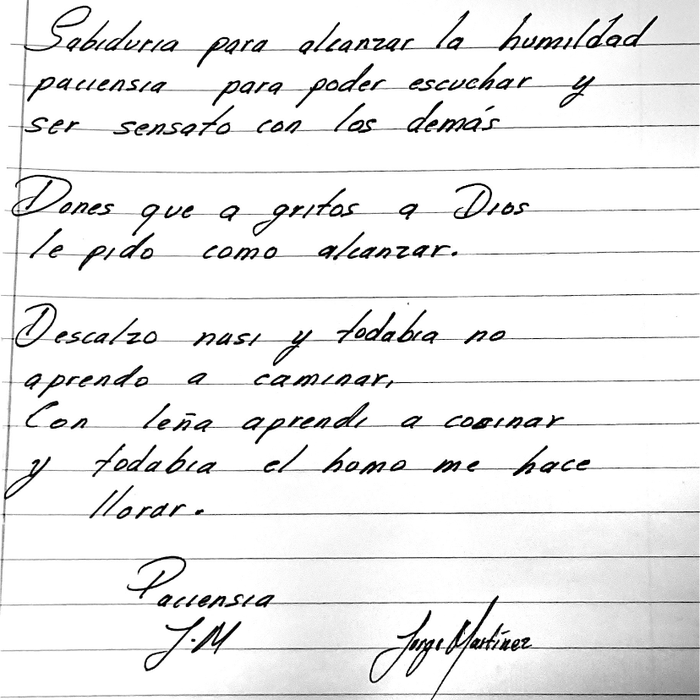 Sabiduria para alcanzar la humildad
paciensia para poder escuchar y
ser sensato con los demás
Dones que a gritos a Dios
le pido como alcanzar.
Descalzo nasi y todabia no
aprendo a caminar,
Con leña aprendi a cosinar
y todabia el homo me hace
llorar.
Paciensia
J.M
Jorge Martínez